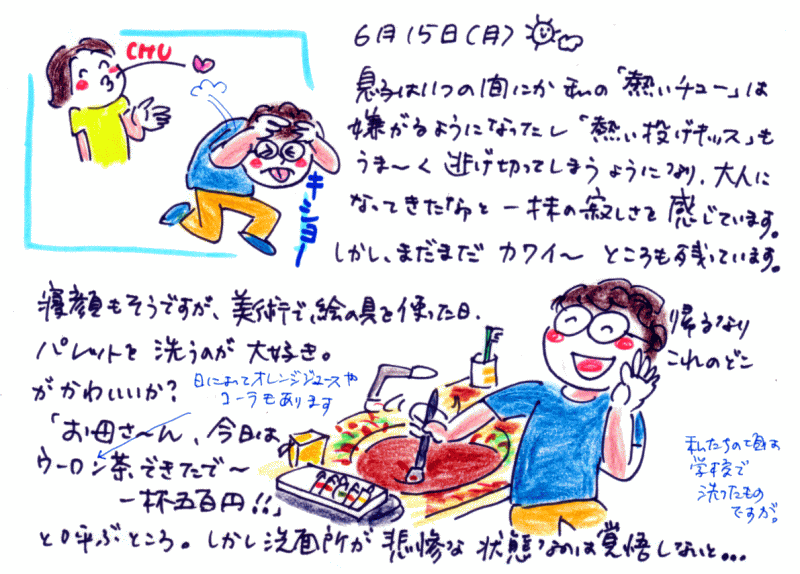 6月15日(月)
CHU
息子はいつの間にか私の「熱いチュー」は
嫌がるようになったし「熱い投げキッス」も
うま〜く逃げ切ってしまうようになり、大人に
なってきたなぁと一抹の寂しさを感じています。
しかし、まだまだカワイ〜ところも残っています。
キショー
寝顔もそうですが、美術で、絵の具を使った日、
帰るなり
パレットを洗うのが大好き。
これのどこ
がかわいいか?
日によってオレンジジュースや
コーラもあります
「お母さ〜ん、今日は、
ウーロン茶、できたで〜
一杯五百円!!」
と呼ぶところ。しかし洗面所が悲惨な状態なのは覚悟しないと...
私たちの頃は
学校で
洗ったもの
ですが。